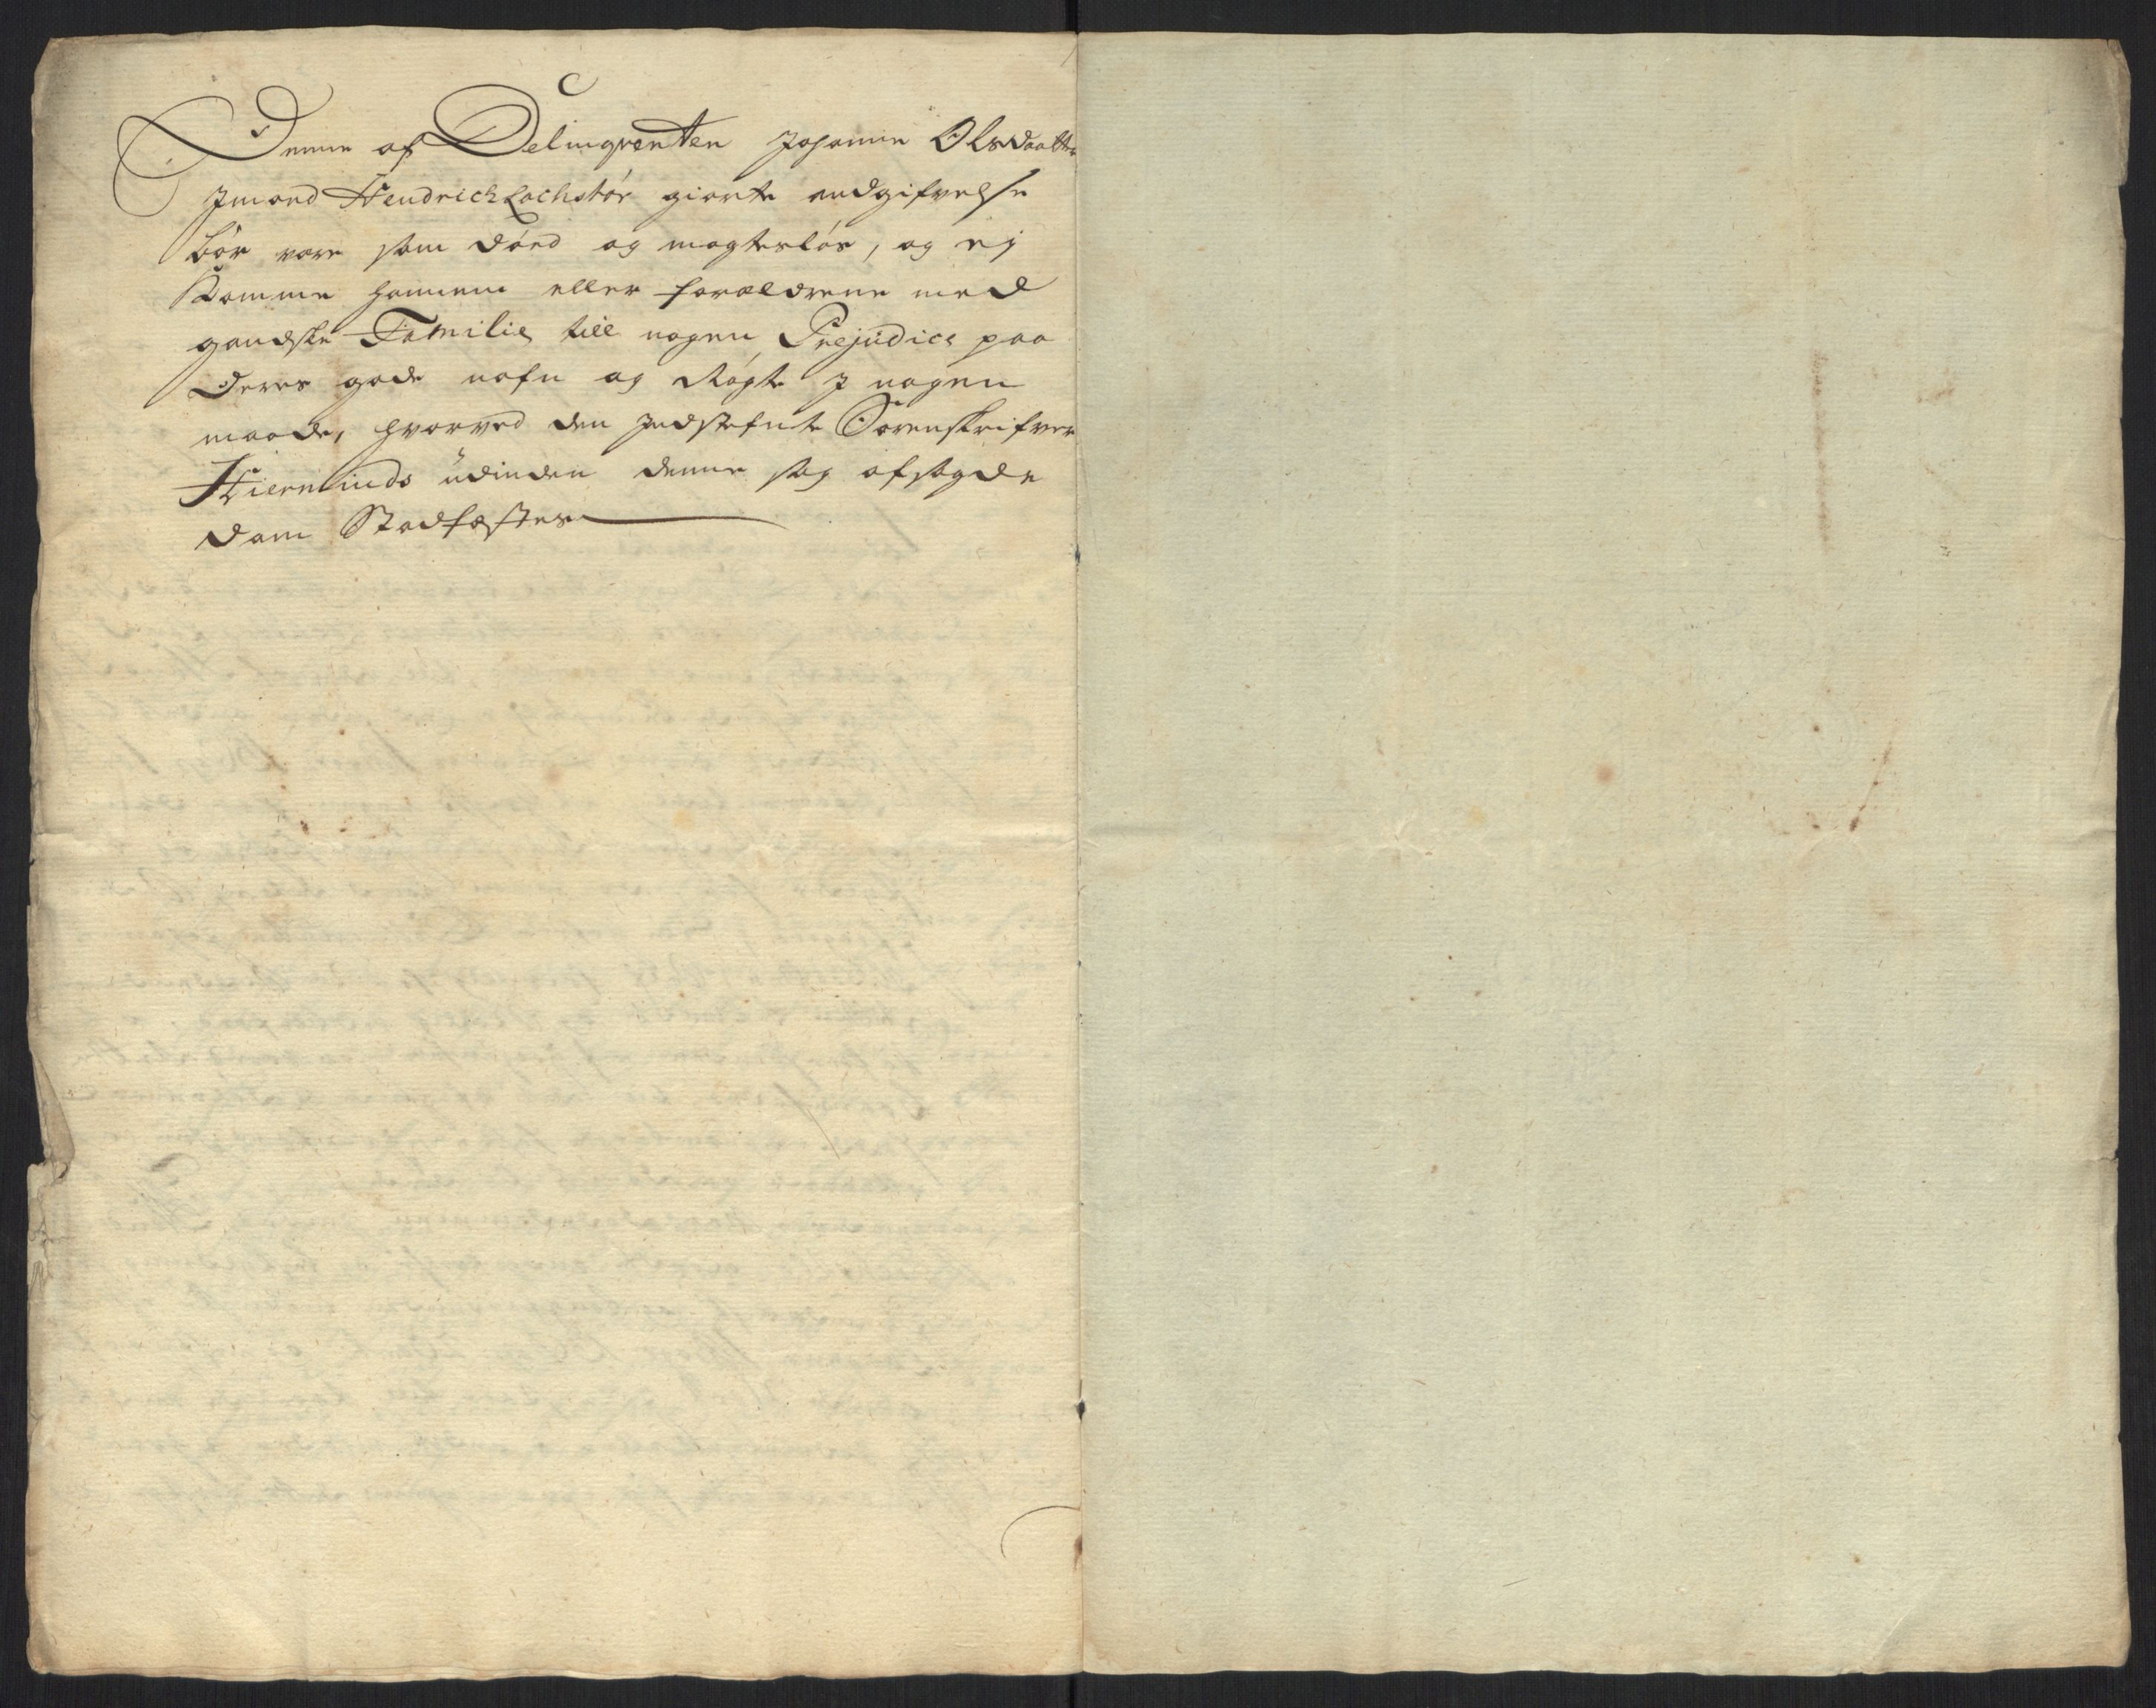 Denne af Delinqventen Johanne Olsdaatter
Imond Hendrich Lachstør giorte andgifvelse
bör være som död og magteslös, og ej
komme hannem eller foræeldrene med
gandske Familie till nogen Prejudice paa
deres gode nafn og Rögte I nogen
maade, hvorved den Indstefnte Sorenskrifver
Hiernlunds udinden denne sag afsagde
dom Stadfæstes